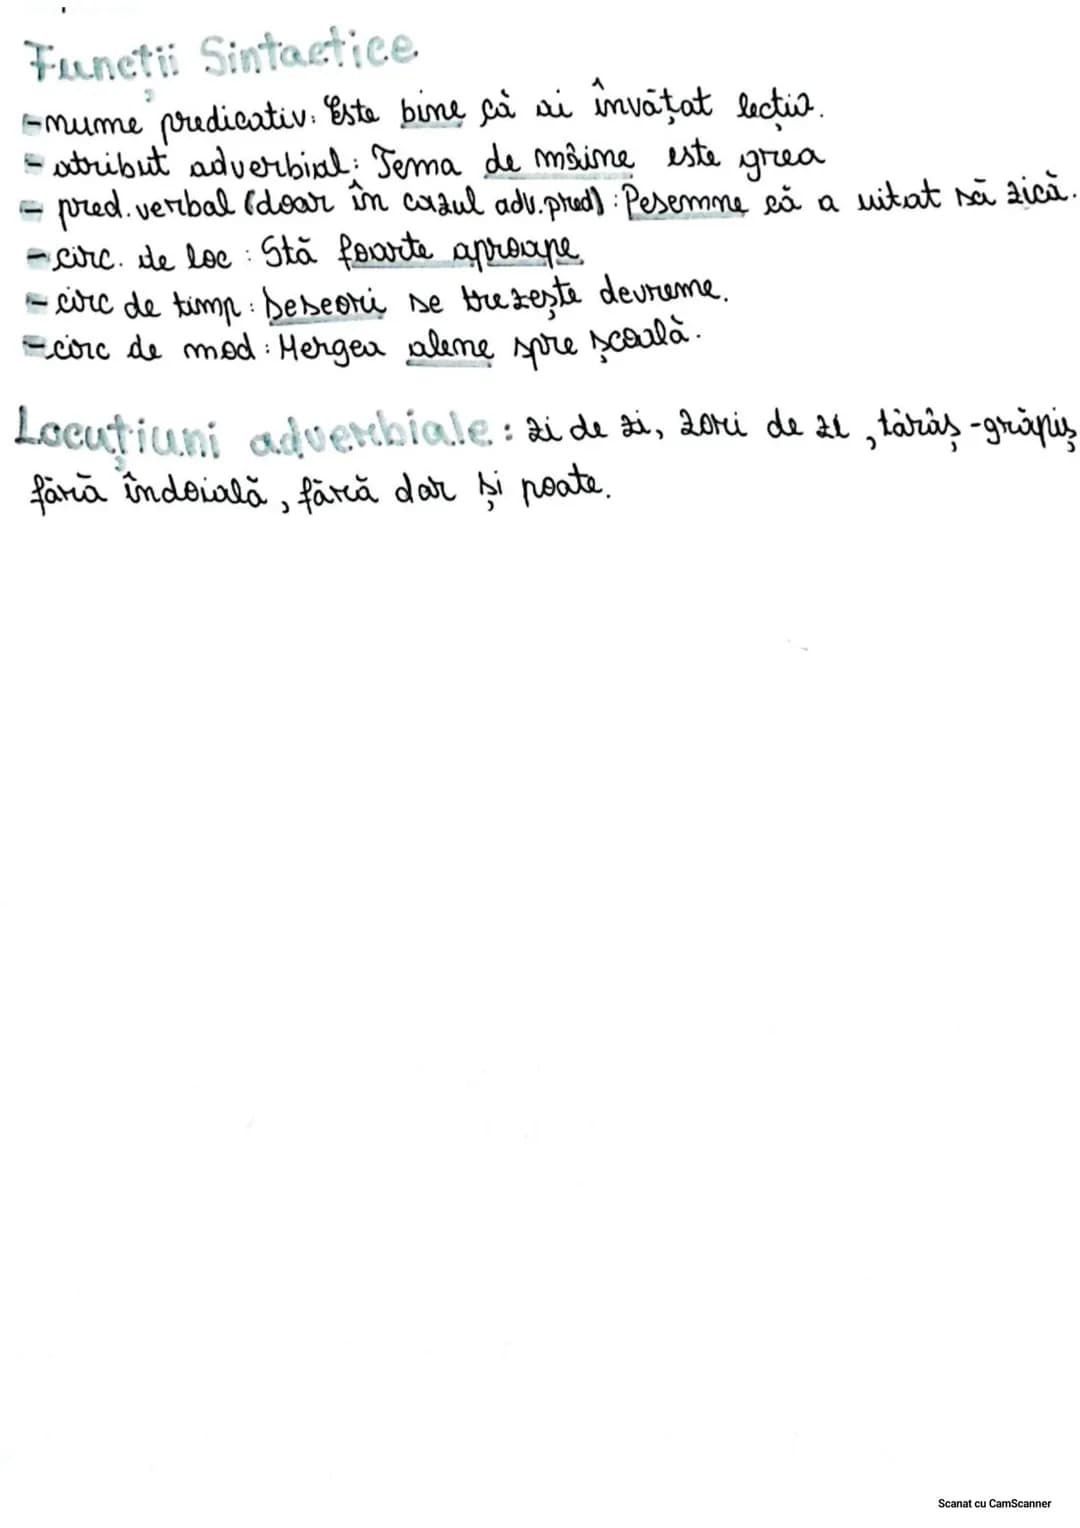 Funcții Sintactice
-nume predicativ: Este bine că ai învățat lecția.
- atribut adverbial: Tema de mâine este grea
- pred. verbal (doar în cazul adv. pred) : Pesemne că a uitat să zică.
- circ. de loc : Stă foarte aproape
- circ de timp : Deseori se trezește devreme.
- circ de mod : Mergea alene spre școală.
Locuțiuni adverbiale : zi de zi, zori de zi, târâș-grăpiș
fără îndoială, fără dar și poate.
Scanat cu CamScanner